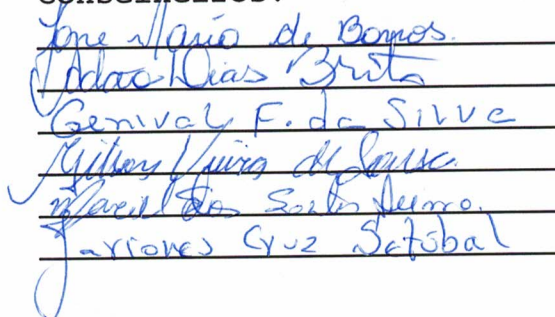 Jose Mario de Barros.
Adao Dias Brito
Genival F. da Silva
Gilson Vieira de Sousa.
dos Santos
Cruz Setúbal